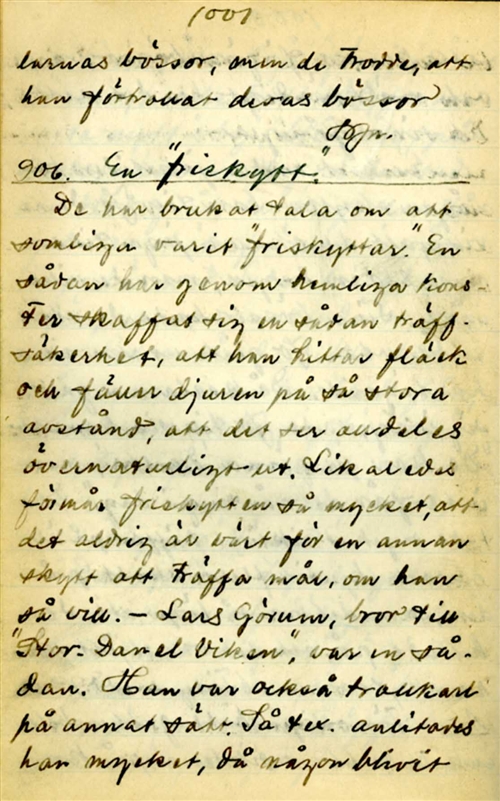 1001
larnas bössor, men de trodde, att
han förtrollat deras bössor
906. En "friskytt."
De har brukat tala om att
somliga varit "friskyttar." En
sådan har genom hemliga kons-
ter skaffat sig en sådan träff-
säkerhet, att han hittar fläck
och fäller djuren på så stora
avstånd, att det ser alldeles
övernaturligt ut. Likaledes
förmår friskytten så mycket, att
det aldrig är värt för en annan
skytt att träffa mål, om han
så vill. – Lars Görum, bror till
"Stor-Daniel Viken", var en så-
dan. Han var också trollkarl
på annat sätt. Så t ex. anlitades
han mycket, då någon blivit